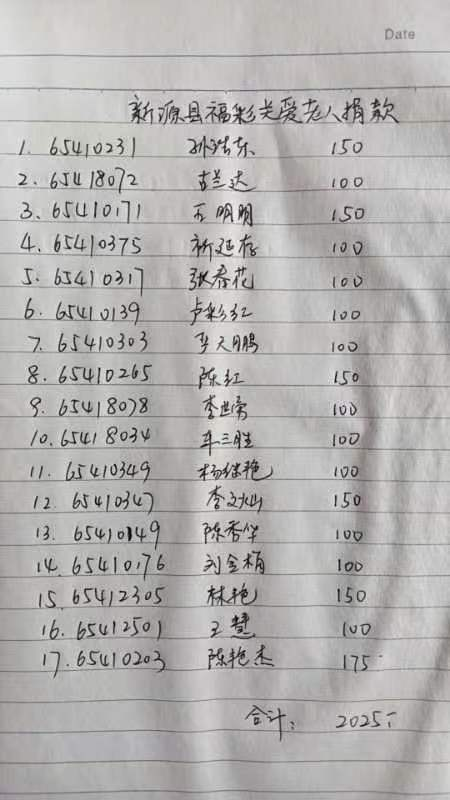 Date
新源县福彩关爱老人捐款
1. 65410231 孙洪东 150
2. 65418072 古兰达 100
3. 65410171 王明明 150
4. 65410375 靳延存 100
5. 65410317 张春花 100
6. 65410139 卢彩红 100
7. 65410303 李天鹏 100
8. 65410265 陈红 150
9. 65418078 李世荣 100
10. 65418034 车三胜 100
11. 65410349 杨继艳 100
12. 65410347 李文灿 150
13. 65410149 陈香华 100
14. 65410176 刘金梅 100
15. 65412305 林艳 150
16. 65412501 王慧 100
17. 65410203 陈艳杰 175
合计: 2025